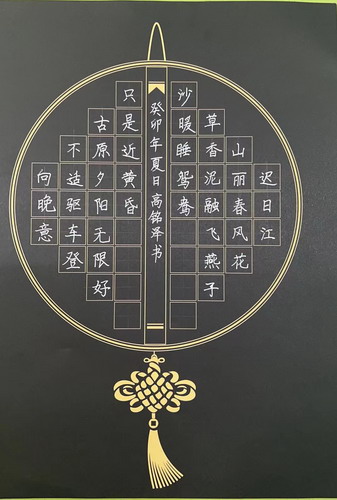 迟日江
山丽春风花
草香泥融飞燕子
沙暖睡鸳鸯
向晚意
不适驱车登
古原夕阳无限好
只是近黄昏
癸卯年夏日高铭泽书